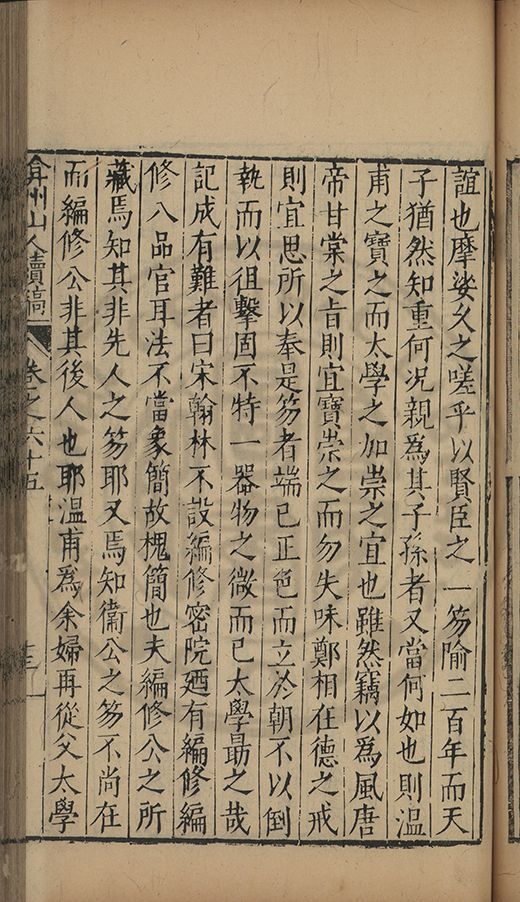 誼也摩娑久之嗟乎以賢臣之一笏隃二百年而天
子猶然知重何况親爲其子孫者又當何如也則溫
甫之寶之而太學之加崇之宜也雖然竊以爲風唐
帝甘棠之㫖則宜寶崇之而勿失味鄭相在德之戒
則宜思所以奉是笏者端已正色而立於朝不以倒
執而以徂擊固不特一器物之微而已太學勗之哉
記成有難者曰宋翰林不設編修密院廼有編修編
修八品官耳法不當象簡故槐簡也夫編修公之所
藏焉知其非先人之笏耶又焉知衞公之笏不尚在
而編修公非其後人也耶溫甫爲余婦再從父太學
弇州山人續稿
卷之六十五
十三